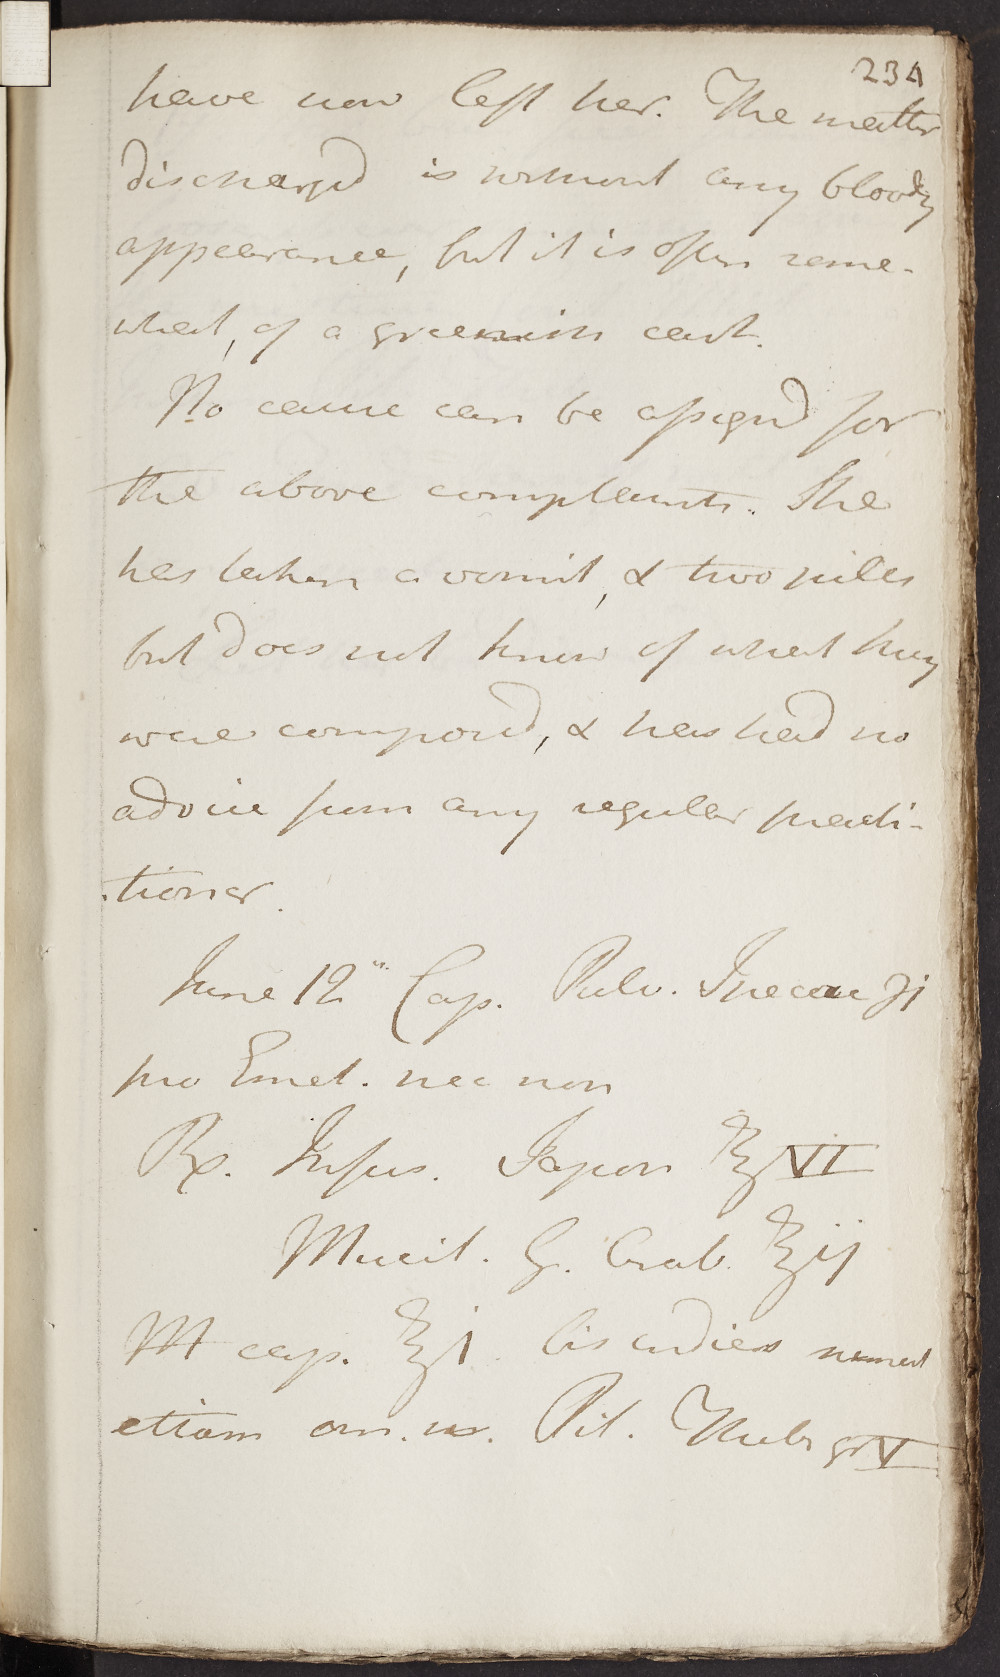 234
have now left her. The matter
discharg'd is without any bloody
appearance, but it is often some-
what, of a greenish cast.
No cause can be assign'd for
the above complaints. She
has taken a vomit, & two pills
but does not know of what they
were compos'd, & has had no
advice from any regular practi-
tioner.
June 12th Cap. Pulv. Ipecac ℈j
pro Emet. nec non
Rx. Infus. Japon ℥VI
Mucil. G. Arab. ℥ij
M cap. ℥j bis indies sumat
etiam om. no. Pil. Theb: grV